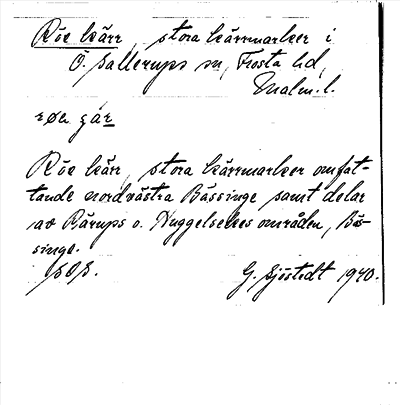 Röe kärr, stora kärrmarker i
Ö. Sallerups sn, Frosta hd,
Malm. l.
Röe kärr, stora kärrmarker omfat-
tande nordvästra Bässinge samt delar
av Rärups o. Huggelsekes områden, Bäs-
singe.
G. Sjöstedt 1940.